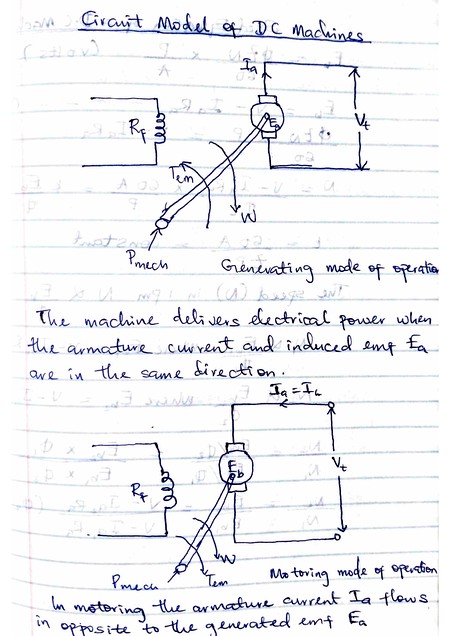 Circuit Model of DC Machines
Ia
Rf
Ea
Vt
Tem
W
Pmech
Generating mode of operation
The machine delivers electrical power when
the armature current and induced emf Ea
are in the same direction.
Ia = IL
Rf
Eb
Vt
W
Pmech
Tem
Motoring mode of operation
In motoring the armature current Ia flows
in opposite to the generated emf Ea